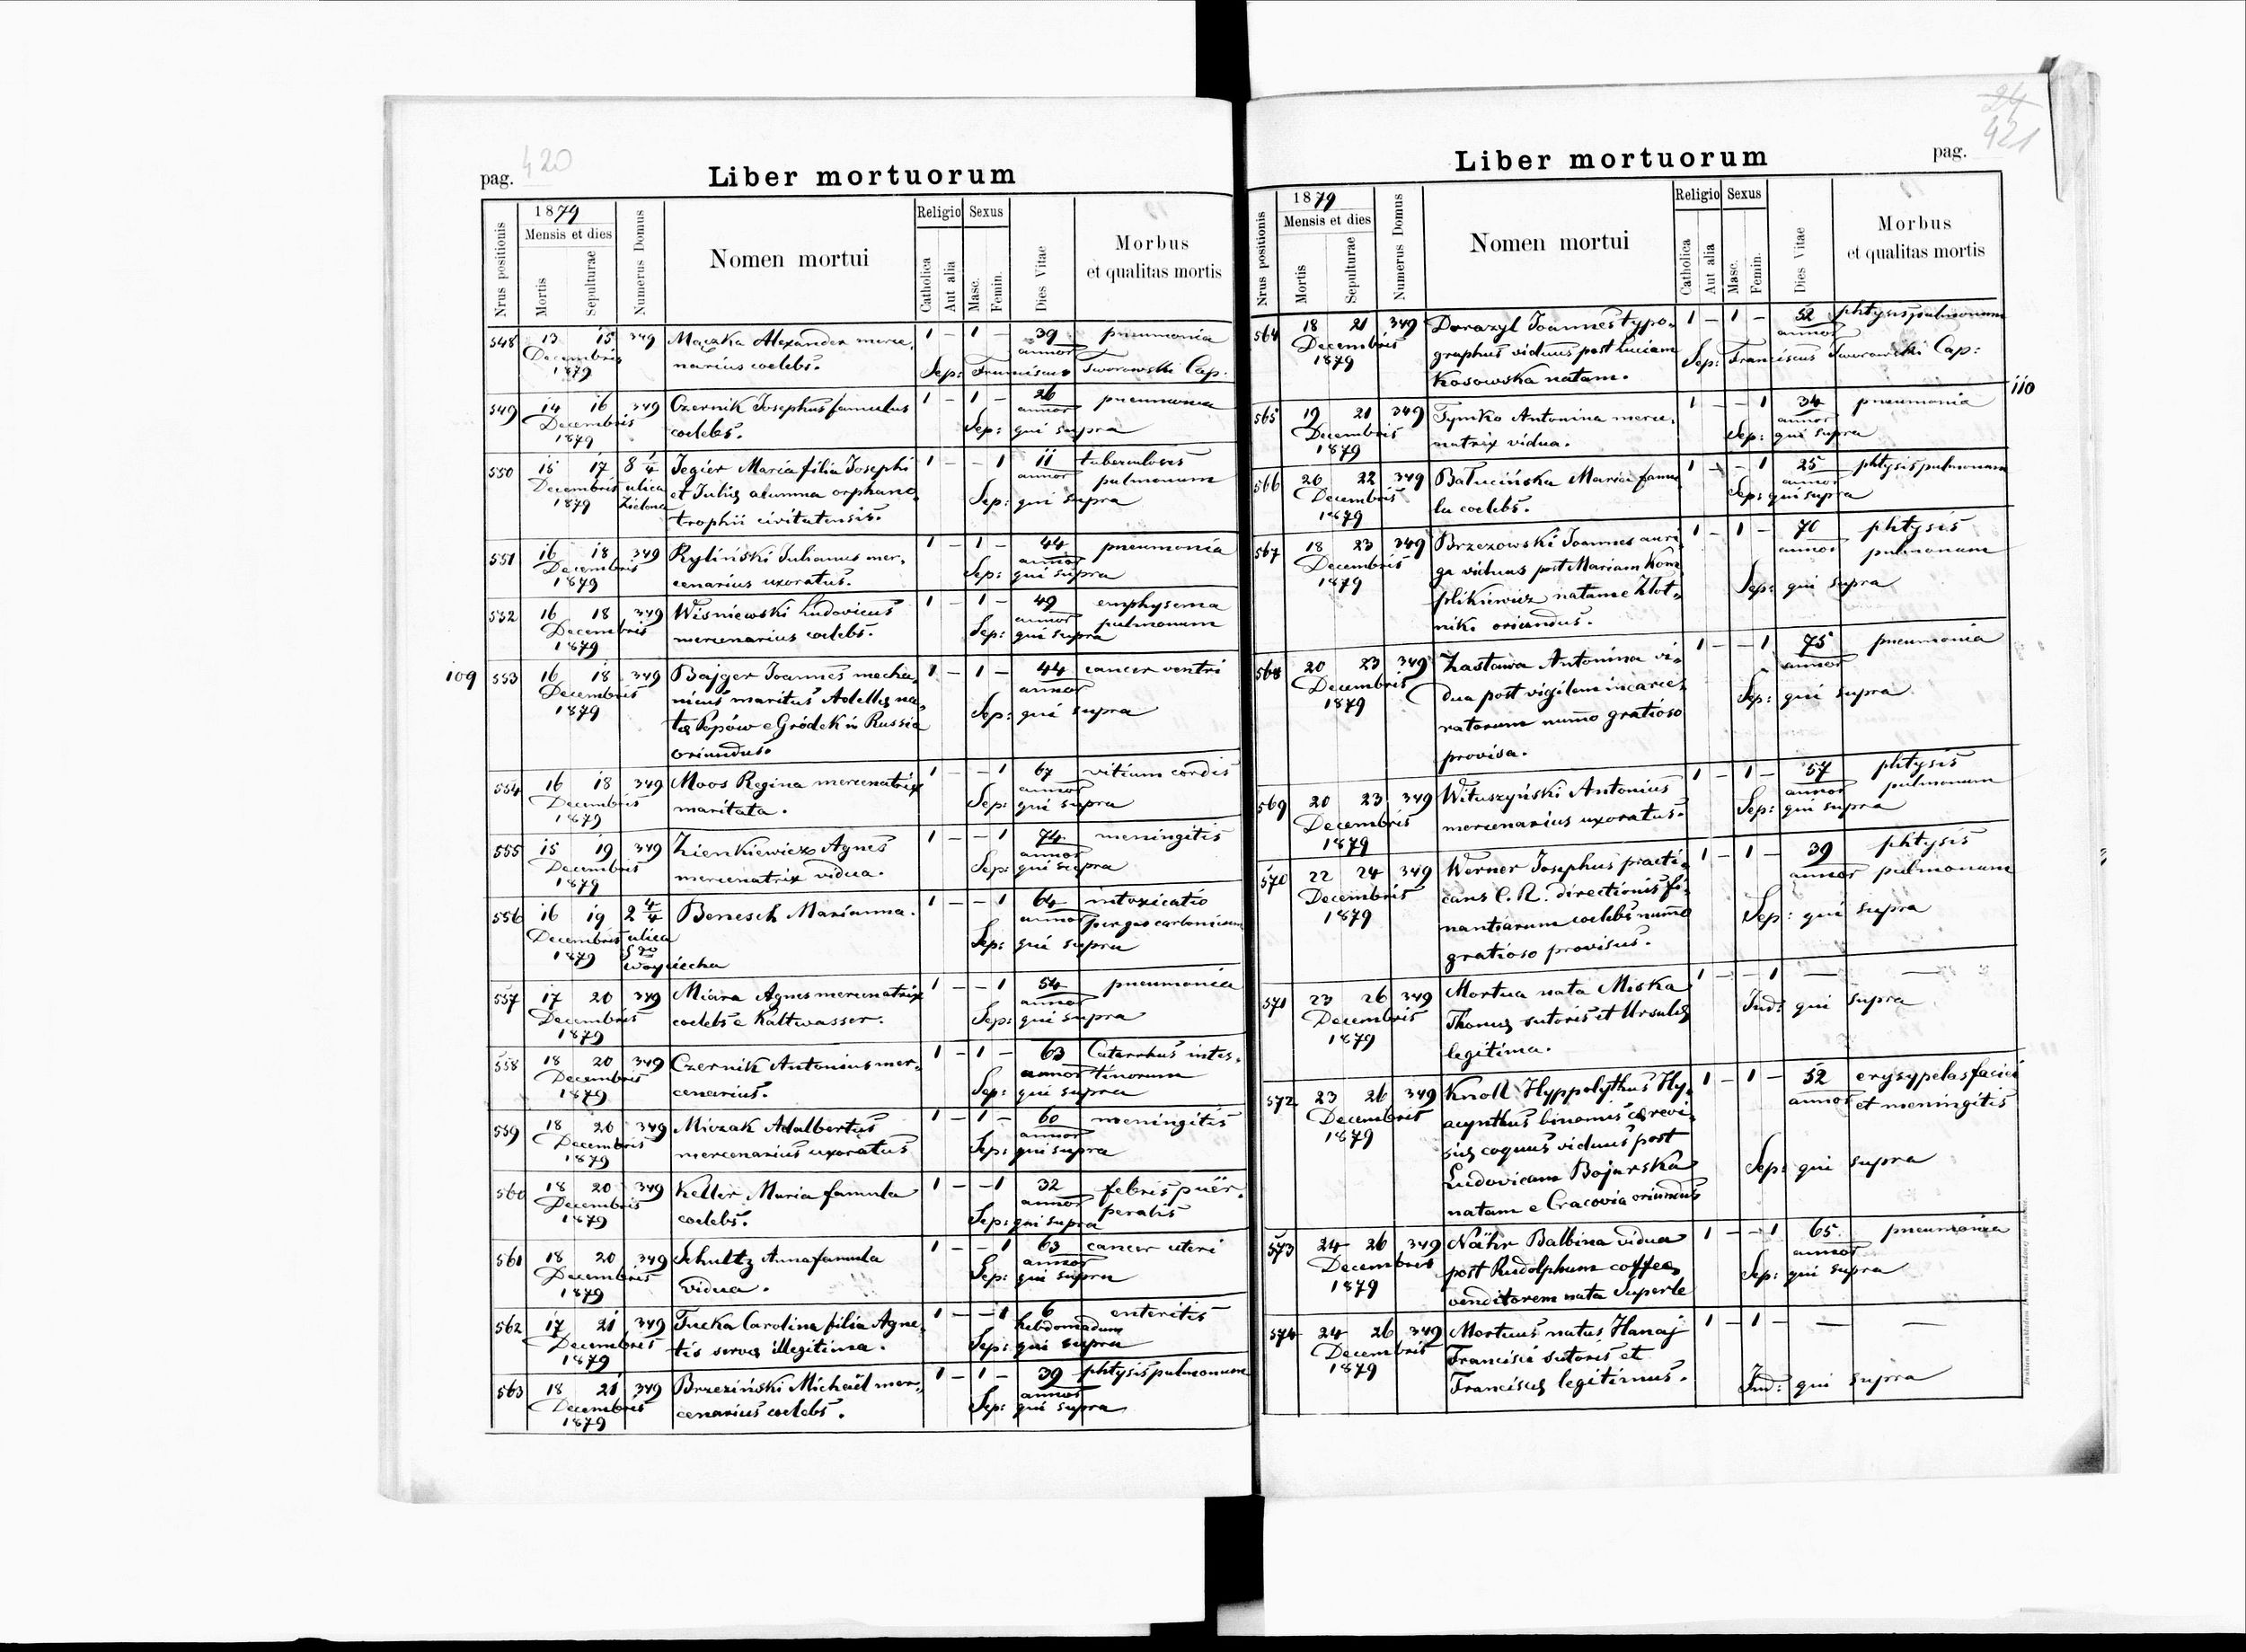 420
pag.
Liber mortuorum
Nrus positionis
1879
Mensis et dies
Mortis
Sepulturae
Numerus Domus
Nomen mortui
Religio
Catholica
Aut alia
Sexus
Masc.
Femin.
Dies Vitae
Morbus
et qualitas mortis
548 13 15 349 Mączka Alexander merce, 1 – 1 – 39 pneumonia
Decembris narius coelebs. annor
1879 Sep: Franciscus Tworowski Cap.
549 14 16 349 Czernik Josephus famulus 1 – 1 – 26 pneumonia
Decembris coelebs. annor
1879 Sep: qui supra
550 15 17 8 1/4 Jegier Maria filia Josephi 1 – – 1 11 tuberculosis
Decembris ulica et Julię alumna orphano, annor pulmonum
1879 Zielona trophii civitatensis. Sep: qui supra
551 16 18 349 Ryliński Julianus mer, 1 – 1 – 44 pneumonia
Decembris cenarius uxoratus. annor
1879 Sep: qui supra
552 16 18 349 Wiśniewski Ludovicus 1 – 1 – 49 emphysema
Decembris mercenarius coelebs. annor pulmonum
1879 Sep: qui supra
109 553 16 18 349 Bajger Joannes mecha, 1 – 1 – 44 cancer ventri
Decembris nicus maritus Adellę na, annor
1879 tę Popów e Gródek in Russia Sep: qui supra
oriundus.
554 16 18 349 Moos Regina mercenatrix 1 – – 1 67 vitium cordis
Decembris maritata. annor
1879 Sep: qui supra
555 15 19 349 Zienkiewicz Agnes 1 – – 1 74 meningitis
Decembris mercenatrix vidua. annor
1879 Sep: qui supra
556 16 19 2 4/4 Benesch Marianna. 1 – – 1 64 intoxicatio
Decembris ulica annor per gas carbonicum
1879 Sgo Sep: qui supra
Wojciecha
557 17 20 349 Miara Agnes mercenatrix 1 – – 1 54 pneumonia
Decembris coelebs e Kaltwasser. annor
1879 Sep: qui supra
558 18 20 349 Czernik Antonius mer, 1 – 1 – 63 Catarrhus intes,
Decembris cenarius. annor tinorum
1879 Sep: qui supra
559 18 20 349 Miczak Adalbertus 1 – 1 – 60 meningitis
Decembris mercenarius uxoratus annor
1879 Sep: qui supra
560 18 20 349 Keller Maria famula 1 – – 1 32 febris puër,
Decembris coelebs. annor peralis
1879 Sep: qui supra
561 18 20 349 Schultz Anna famula 1 – – 1 63 cancer uteri
Decembris vidua. annor
1879 Sep: qui supra
562 17 21 349 Fucka Carolina filia Agne, 1 – – 1 6 enteritis
Decembris tis servę illegitima. hebdomadum
1879 Sep: qui supra
563 18 21 349 Brzeziński Michaël mer, 1 – 1 – 39 phtysis pulmonum
Decembris cenarius coelebs. annor
1879 Sep: qui supra
24
421
Liber mortuorum
pag.
Nrus positionis
1879
Mensis et dies
Mortis
Sepulturae
Numerus Domus
Nomen mortui
Religio
Catholica
Aut alia
Sexus
Masc.
Femin.
Dies Vitae
Morbus
et qualitas mortis
564 18 21 349 Dorazyl Joannes typo, 1 – 1 – 52 phtysis pulmonum
Decembris graphus viduus post Luciam annor
1879 Kosowska natam. Sep: Franciscus Tworowski Cap:
110
565 19 21 349 Tymko Antonina merce, 1 – – 1 34 pneumonia
Decembris natrix vidua. annor
1879 Sep: qui supra
566 20 22 349 Bałucińska Maria famu, 1 – – 1 25 phtysis pulmonum
Decembris la coelebs. annor
1879 Sep: qui supra
567 18 23 349 Brzezowski Joannes auri, 1 – 1 – 70 phtysis
Decembris ga viduus post Mariam Kom, annor pulmonum
1879 plikiewicz natam e Złot, Sep: qui supra
niki oriundus.
568 20 23 349 Zastawa Antonina vi, 1 – – 1 75 pneumonia
Decembris dua post vigilem incarce, annor
1879 ratorum numo gratioso Sep: qui supra
provisa.
569 20 23 349 Wituszyński Antonius 1 – 1 – 57 phtysis
Decembris mercenarius uxoratus. annor pulmonum
1879 Sep: qui supra
570 22 24 349 Werner Josephus practi, 1 – 1 – 39 phtysis
Decembris cans C. R. directionis fi, annor pulmonum
1879 nantiarum coelebs numo Sep: qui supra
gratioso provisus.
571 23 26 349 Mortua nata Miska 1 – – 1 — —
Decembris Thomę sutoris et Ursulę Ind: qui supra
1879 legitima.
572 23 26 349 Knoll Hyppolythus Hy, 1 – 1 – 52 erysypelas faciei
Decembris acynthus binomis cerevi, annor et meningitis
1879 się coquus viduus post
Ludovicam Bojarska Sep: qui supra
natam e Cracovia oriundus
573 24 26 349 Nähr Balbina vidua 1 – – 1 65 pneumonia
Decembris post Rudolphum coffea, annor
1879 venditorem nata Superle Sep: qui supra
574 24 26 349 Mortuus natus Hanaj 1 – 1 – — —
Decembris Francisci sutoris et
1879 Franciscę legitimus. Ind: qui supra